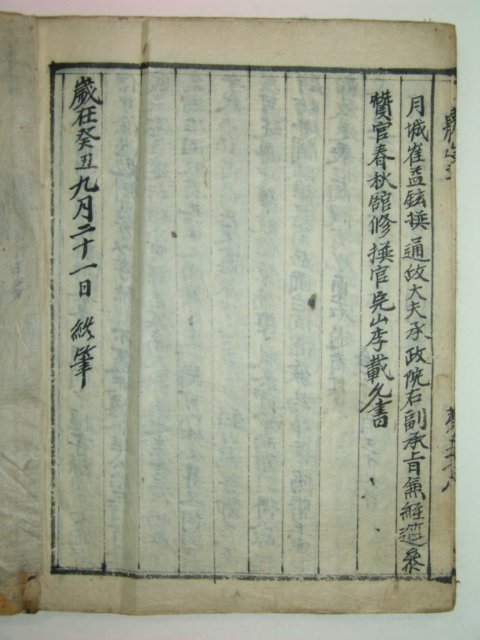 月城崔孟鉉撰通政大夫承政院右副承旨兼經筵參
贊官春秋館修撰官完山李載久書
歲在癸丑九月二十一日 終筆